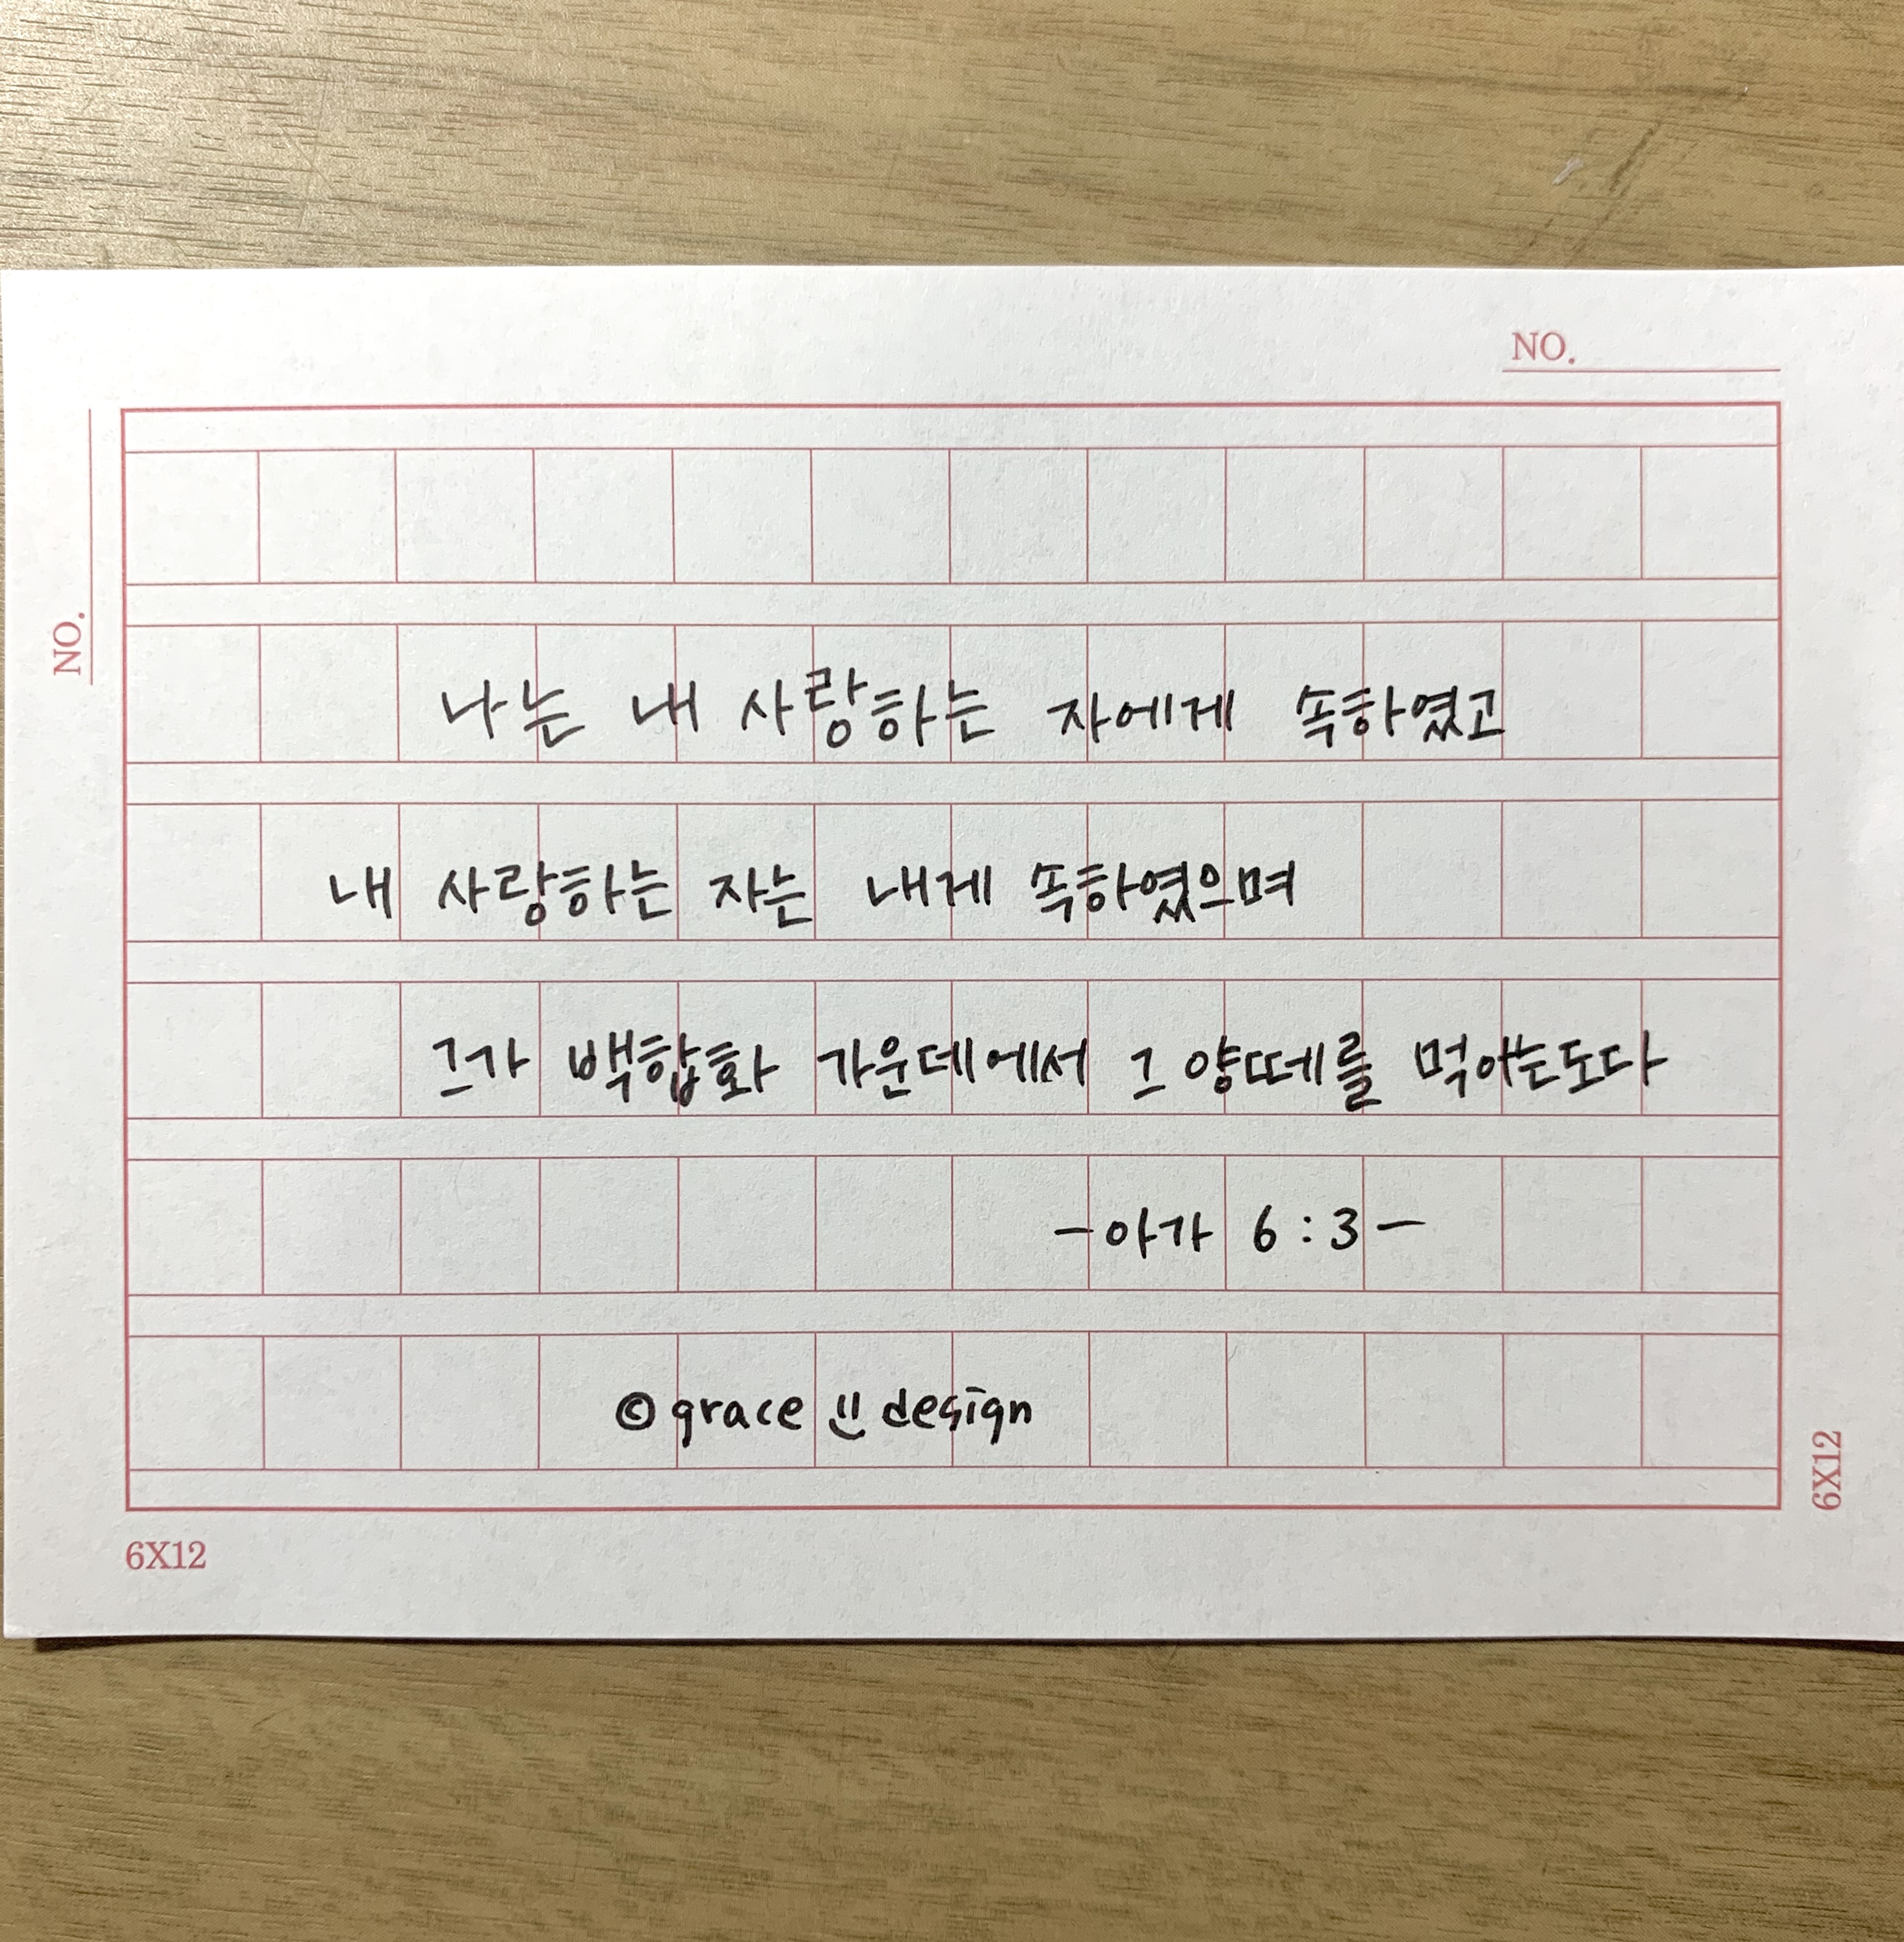 NO.
NO.
나는 내 사랑하는 자에게 속하였고
내 사랑하는 자는 내게 속하였으며
그가 백합화 가운데에서 그 양떼를 먹이는도다
-아가 6:3-
© grace design
6X12
6X12